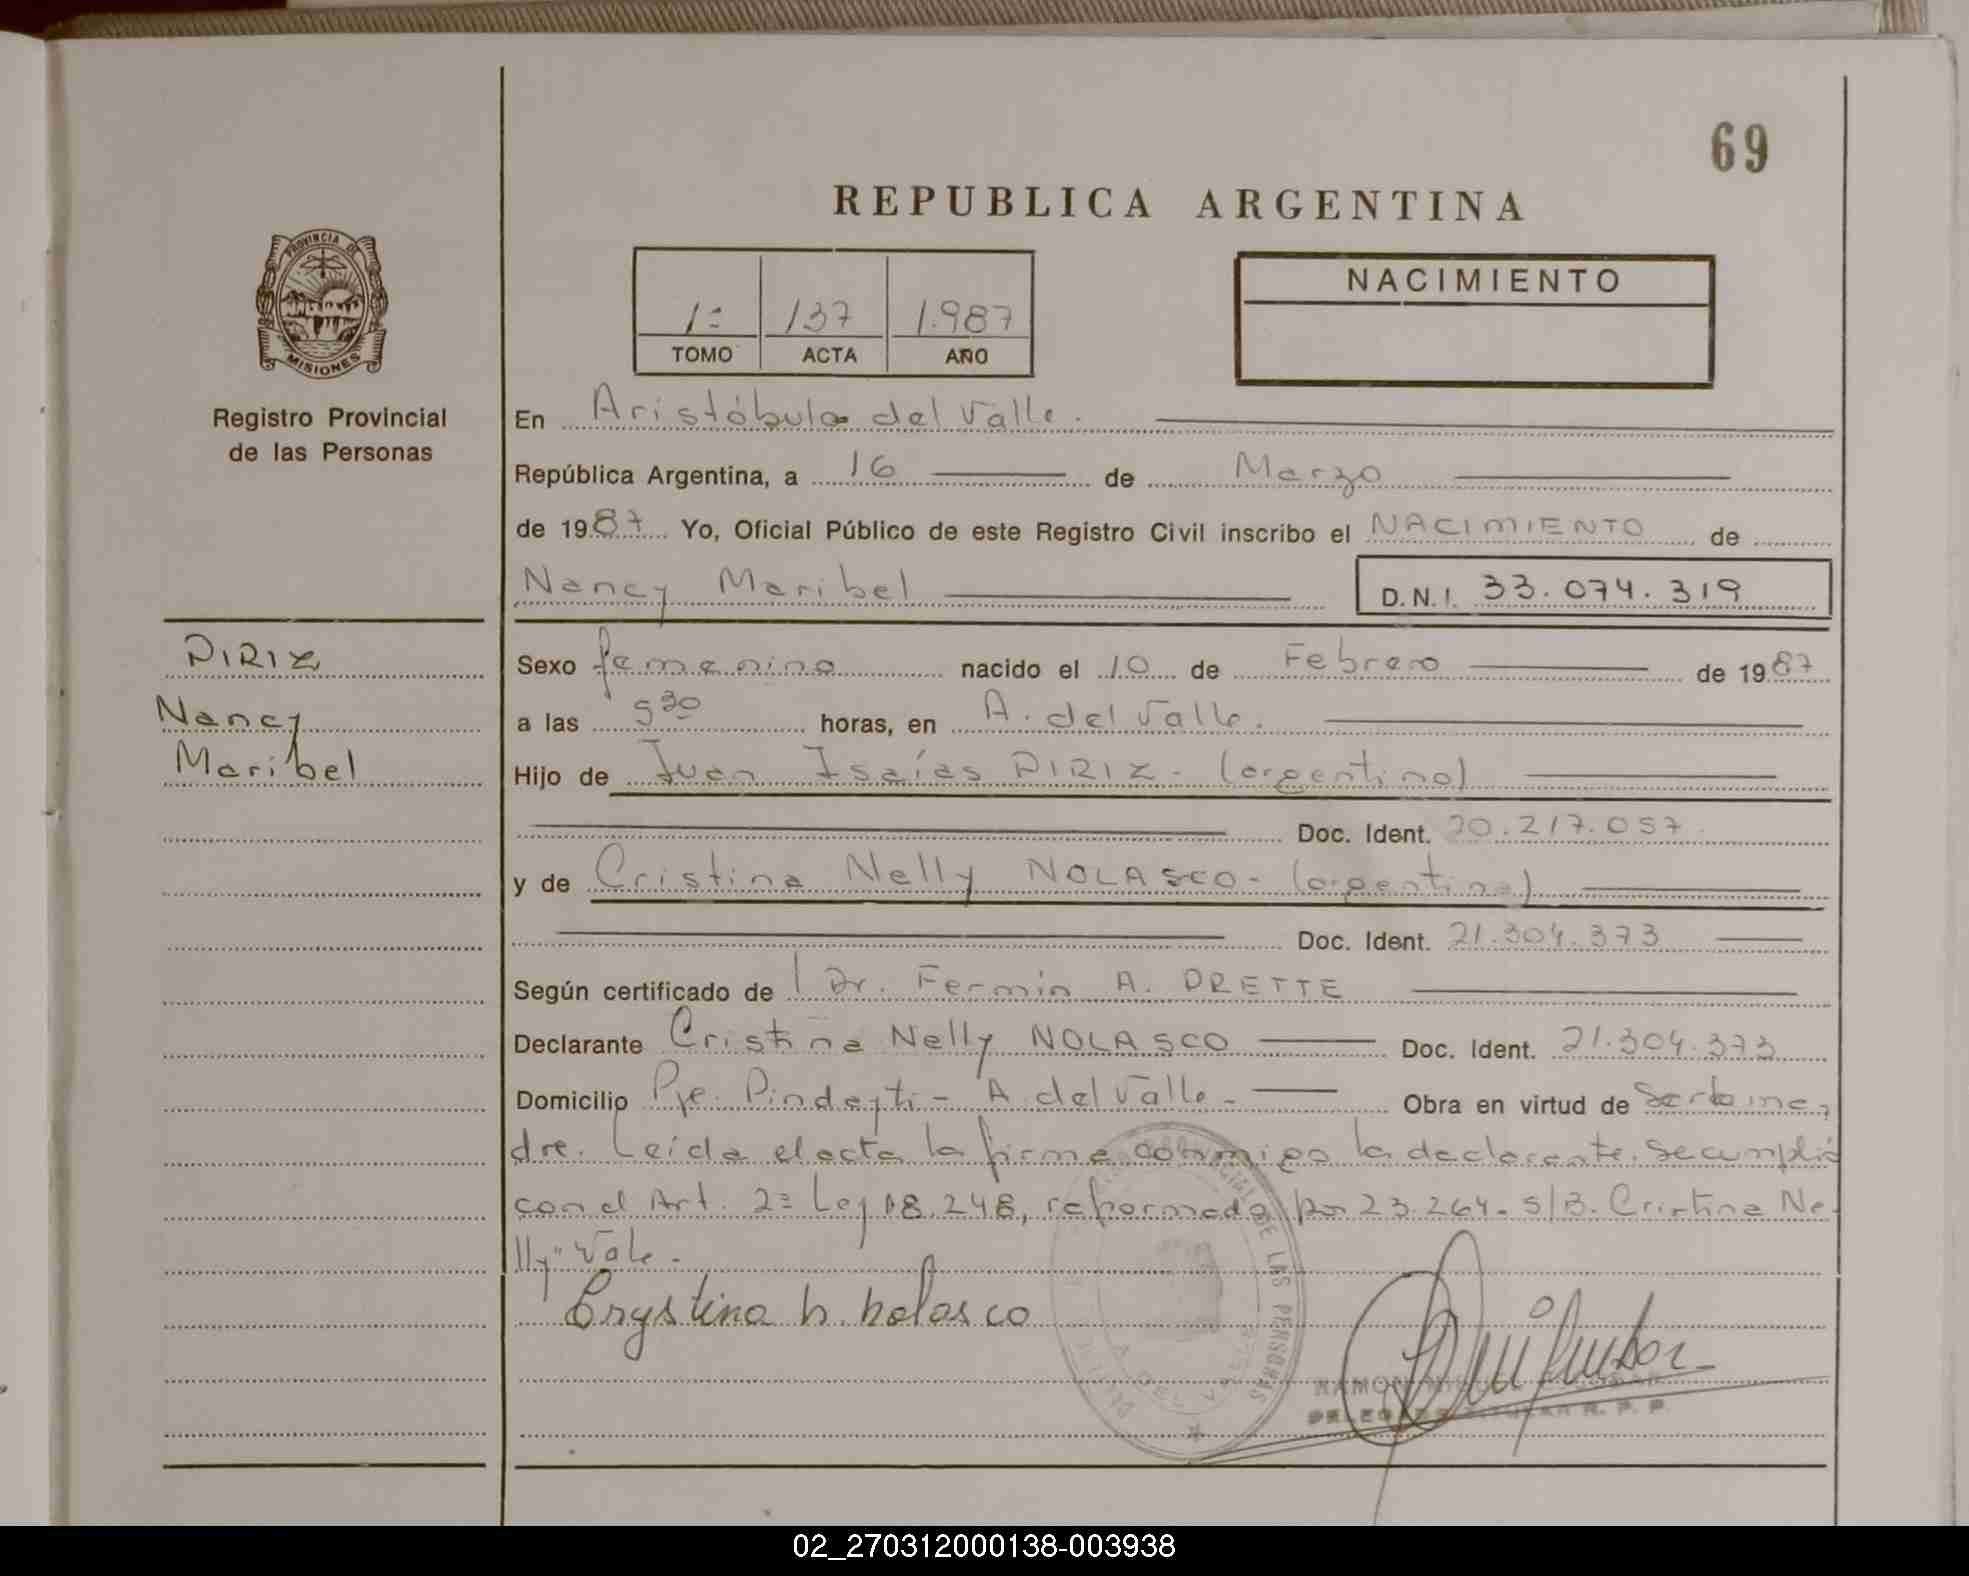 69
REPUBLICA ARGENTINA
PROVINCIA DE
MISIONES
Registro Provincial
de las Personas
1= 137 1.987
TOMO ACTA AÑO
NACIMIENTO
En Aristóbulo del Valle.
República Argentina, a 16 de Marzo
de 1987 Yo, Oficial Público de este Registro Civil inscribo el NACIMIENTO de
Nancy Maribel D.N.I. 33.074.319
PIRIZ
Nancy
Maribel
Sexo femenino nacido el 10 de Febrero de 1987
a las 9 30 horas, en A. del Valle.
Hijo de Juan Isaías PIRIZ - (argentino)
Doc. Ident. 20.217.057
y de Cristina Nelly NOLASCO - (argentina)
Doc. Ident. 21.304.373
Según certificado de Dr. Fermín A. PRETTE
Declarante Cristina Nelly NOLASCO Doc. Ident. 21.304.373
Domicilio Pje. Pindayti - A. del Valle - Obra en virtud de Ser la ma-
dre. Leída el acta la firma conmigo la declarante. Se cumplió
con el Art. 2= Ley 18.248, reformada por 23.264. S/B. Cristina Ne-
lly" Vale.
Crystina n. nolasco
DE LAS PERSONAS
A. DEL VALLE
RAMON
DELEGADO TITULAR R. P. P.
02_270312000138-003938